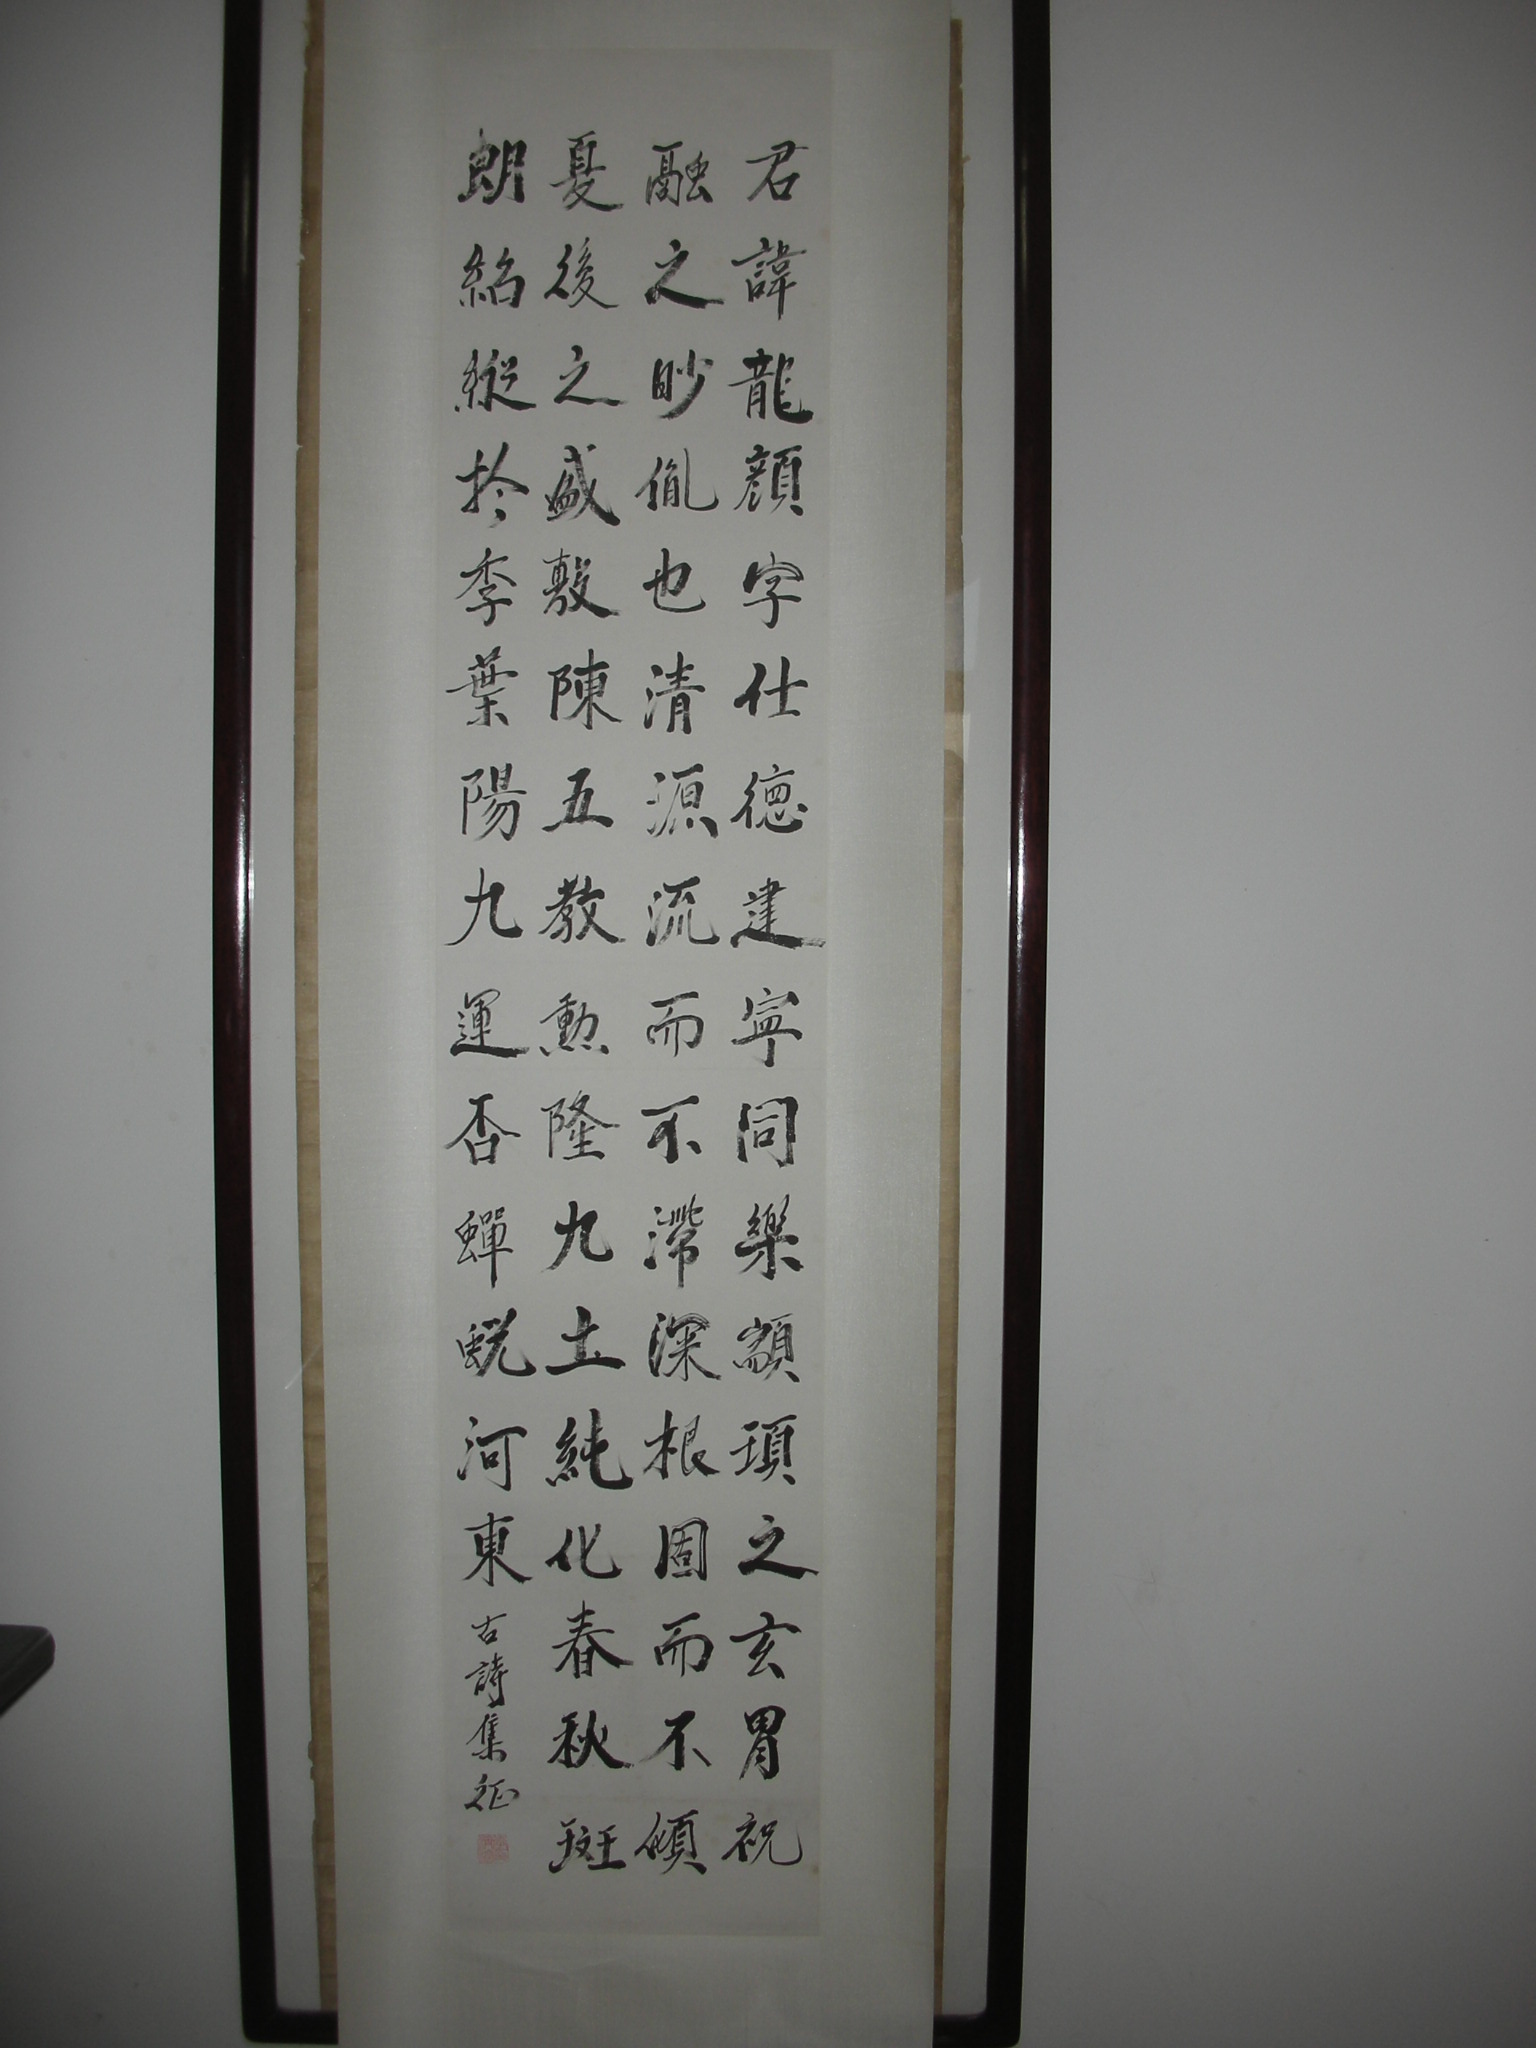 君諱龍顔字仕德建寧同樂顓頊之玄胄祝
融之眇胤也清源流而不滯深根固而不傾
夏後之盛敷陳五教勲隆九土純化春秋斑
朗紹縱於季葉陽九運否蟬蛻河東
古詩集征